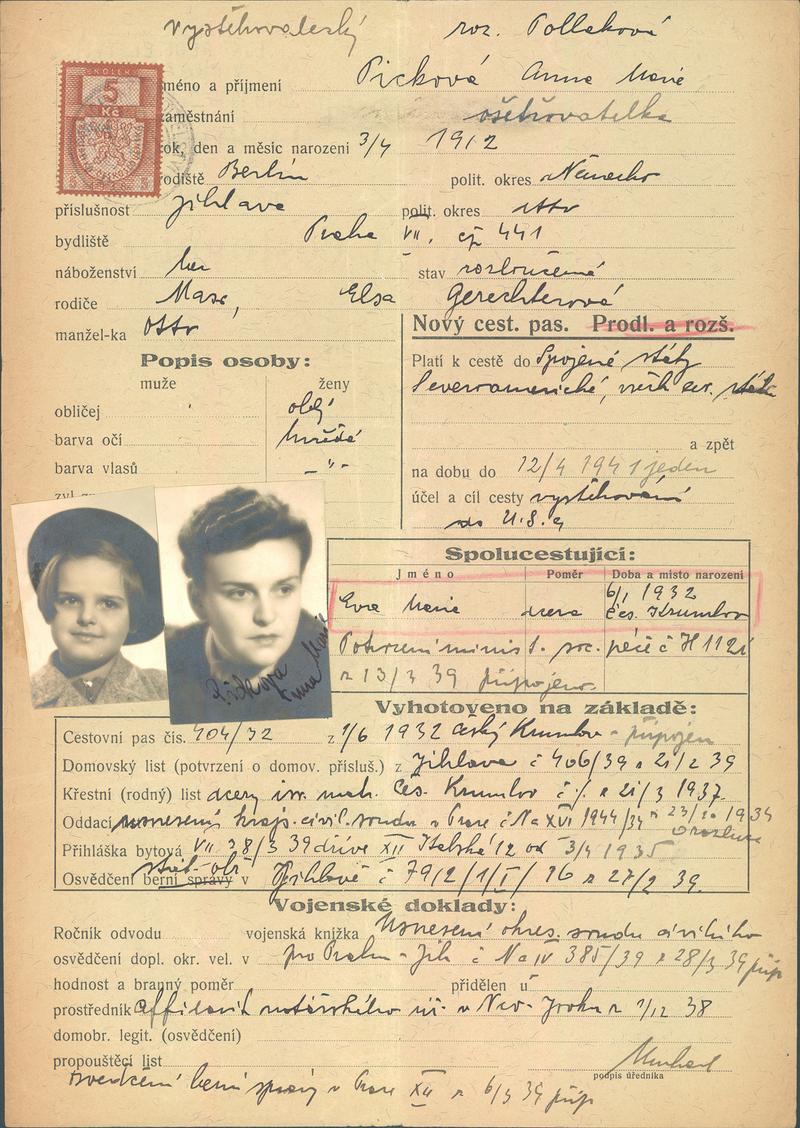 Vystěhovalecký roz. Pollaková
KOLEK
5
Kč
jméno a příjmení Picková Anna Marie
zaměstnání ošetřovatelka
rok, den a měsíc narození 3/4 1912
rodiště Berlín polit. okres Německo
příslušnost Jihlava polit. okres
bydliště Praha VII. čp 441
náboženství bez stav rozloučená
rodiče Max, Elsa Gerechterová
manžel-ka Otto
Nový cest. pas. Prodl. a rozš.
Popis osoby:
muže ženy
Platí k cestě do Spojené státy
Severoamerické, všech evr. států
obličej obl.
barva očí hnědé
barva vlasů -"-
a zpět
na dobu do 12/4 1941 jeden
účel a cíl cesty vystěhování
do U.S.A
Picková Anna Marie
Spolucestující:
Jméno Poměr Doba a místo narození
Eva Marie dcera 6/1 1932
Čes. Krumlov
Potvrzení minist. soc. péče č H 1121
z 13/3 39 připojeno.
Vyhotoveno na základě:
Cestovní pas čís. 404/32 z 1/6 1932 Český Krumlov - připojen
Domovský list (potvrzení o domov. přísluš.) z Jihlava č 406/39 z 21/2 39
Křestní (rodný) list dcery isr. mat. Čes. Krumlov č /. z 21/3 1937.
Oddací usnesení krajs. civil. soudu v Praze č Nc XVI 1944/34 z 23/10 1934
o rozluce
Přihláška bytová VII 28/3 39 dříve XII Italská 12 od 3/4 1935
Osvědčení berní správy v stát. obč. Jihlavě č 79/2/1/I/26 z 27/2 39.
Vojenské doklady:
Ročník odvodu vojenská knížka Usnesení okres. soudu civilního
osvědčení dopl. okr. vel. v pro Prahu - Jih č Nc IV 385/39 z 28/3 39 přip
hodnost a branný poměr přidělen u
prostředník affidavit notářského úř. v New-Yorku z 1/12 38
domobr. legit. (osvědčení)
propouštěcí list
podpis úředníka
osvědčení berní správy v Praze XII z 6/3 39 přip